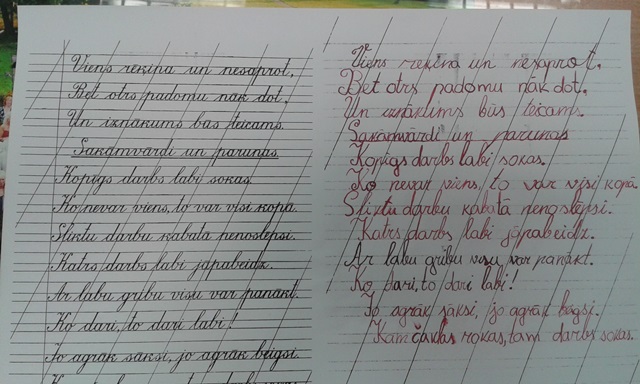 Viens rēķina un nesaprot,
Bet otrs padomu nāk dot,
Un iznākums būs teicams.
Sakāmvārdi un parunas
Kopīgs darbs labi sokas.
Ko nevar viens, to var visi kopā.
Sliktu darbu kabatā nenoslēpsi.
Katrs darbs labi jāpabeidz.
Ar labu gribu visu var panākt.
Ko dari, to dari labi!
Jo agrāk sāksi, jo agrāk beigsi.
Viens rēķina un nesaprot,
Bet otrs padomu nāk dot,
Un iznākums būs teicams.
Sakāmvārdi un parunas
Kopīgs darbs labi sokas.
Ko nevar viens, to var visi kopā
Sliktu darbu kabatā nenoslēpsi.
Katrs darbs labi jāpabeidz.
Ar labu gribu visu var panākt.
Ko dari, to dari labi!
Jo agrāk sāksi, jo agrāk beigsi.
Kam čaklas rokas, tam darbs sokas.